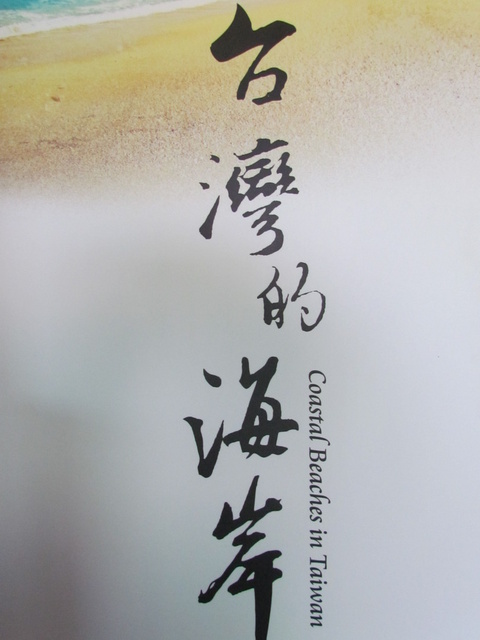 台灣的海岸
Coastal Beaches in Taiwan